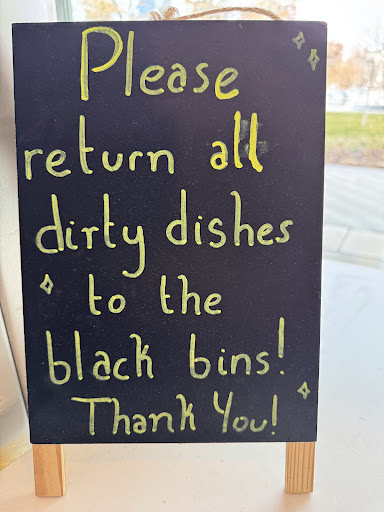 Please
return all
dirty dishes
to the
black bins!
Thank You!